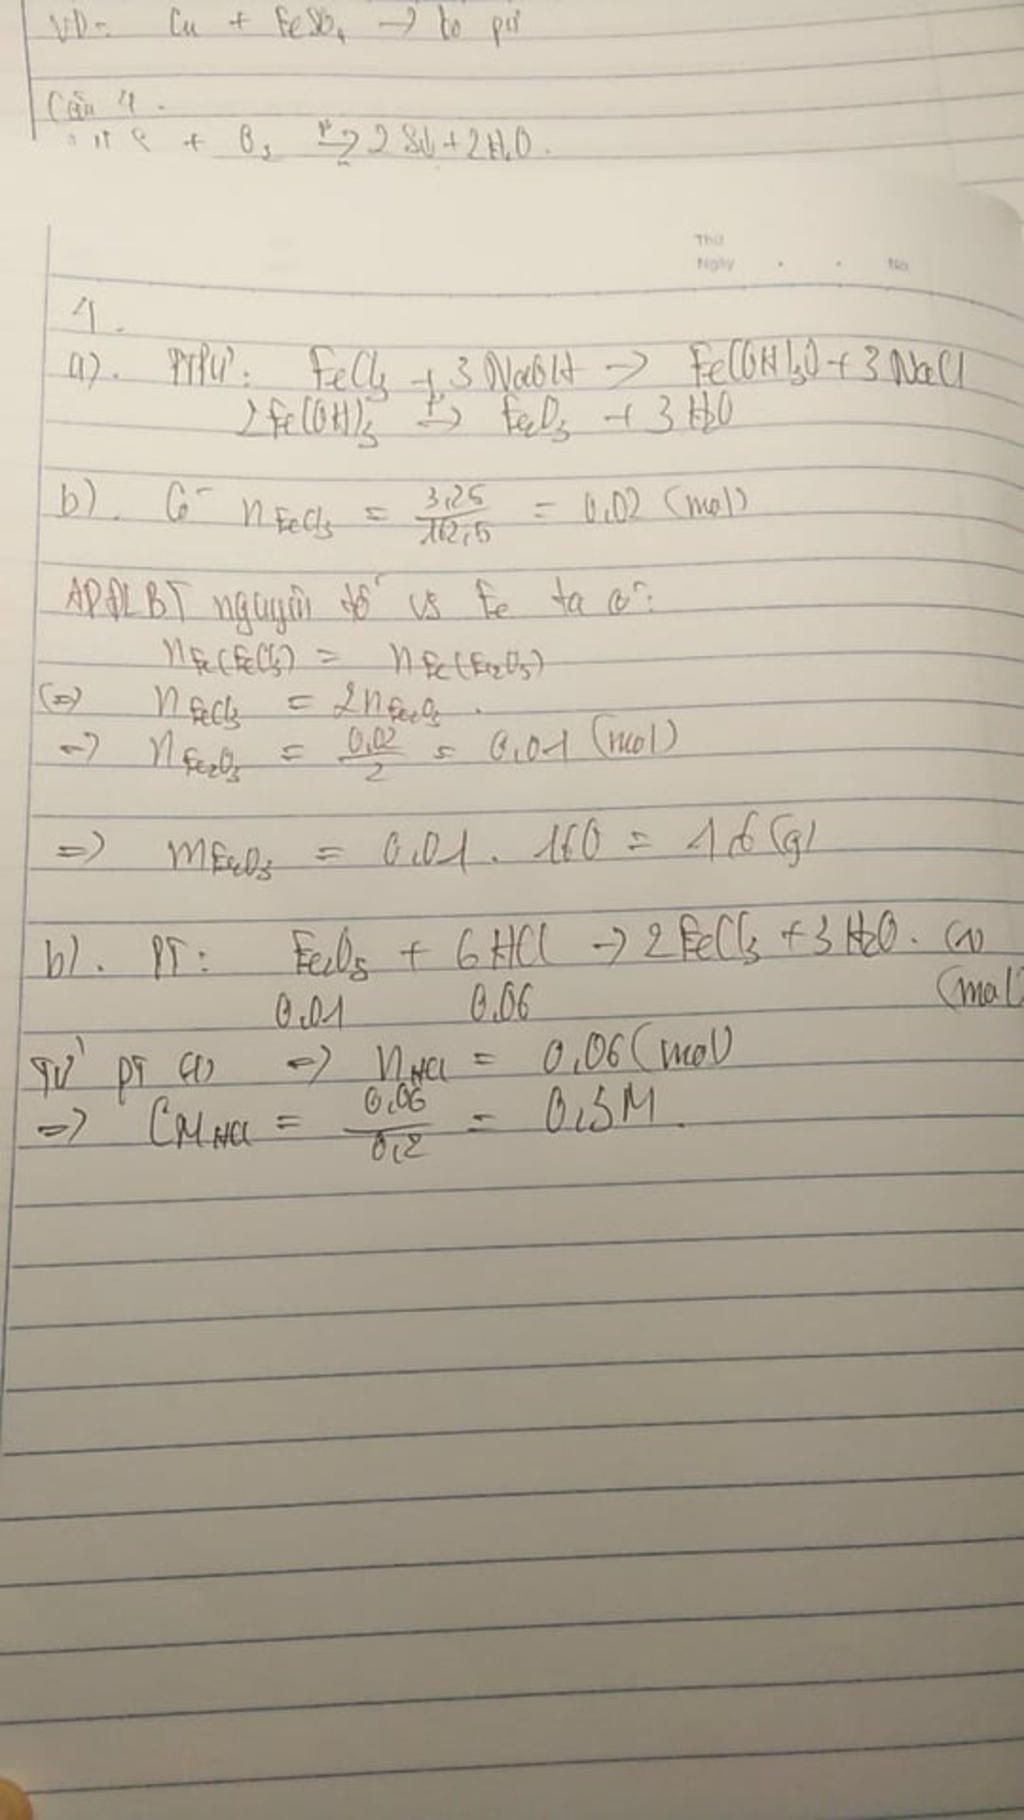 VD: Cu + FeSO₄ → ko pứ
Câu 4.
+ O₂ t°→ 2SO₂ + 2H₂O.
Thứ
Ngày . . No
4.
a). PTPƯ: FeCl₃ + 3NaOH → Fe(OH)₃↓ + 3NaCl
2Fe(OH)₃ t°→ Fe₂O₃ + 3H₂O
b). Có n FeCl₃ = 3,25/162,5 = 0,02 (mol)
APĐLBT nguyên tố vs Fe ta có:
n Fe(FeCl₃) = n Fe(Fe₂O₃)
(=) n FeCl₃ = 2n Fe₂O₃.
=) n Fe₂O₃ = 0,02/2 = 0,01 (mol)
=) m Fe₂O₃ = 0,01 . 160 = 1,6 (g)
b). PT: Fe₂O₃ + 6HCl → 2FeCl₃ + 3H₂O. (1)
0,01 0,06 (mol)
Từ pt (1) =) n HCl = 0,06 (mol)
=) CM HCl = 0,06/0,2 = 0,3M.